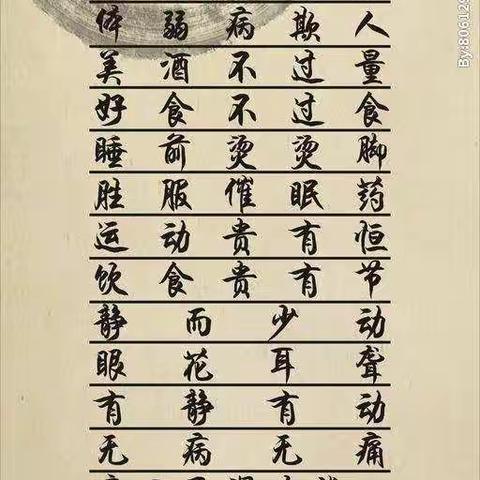 体弱病欺人
美酒不过量
好食不过食
睡前烫烫脚
胜服催眠药
运动贵有恒
饮食贵有节
静而少动
眼花耳聋
有静有动
无病无痛
By:80612